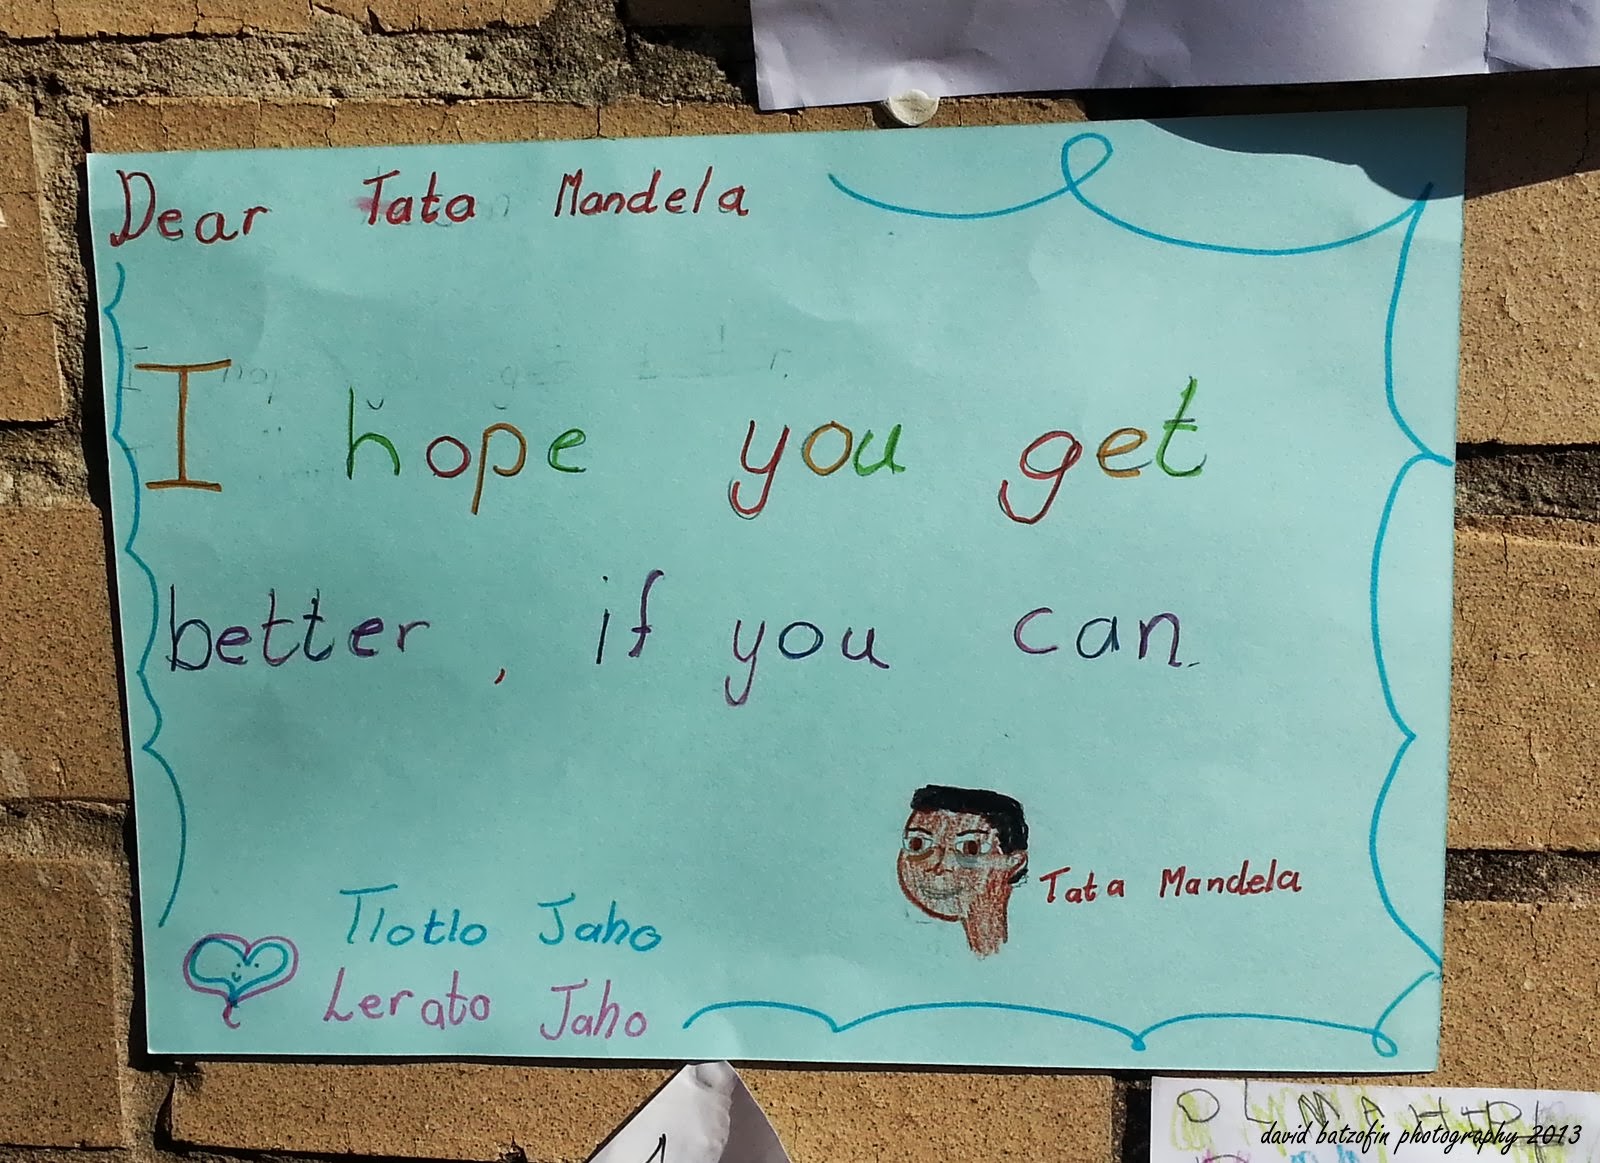 Dear Tata Mandela
I hope you get
better, if you can.
Tata Mandela
Tlotlo Jaho
Lerato Jaho
david batzofin photography 2013